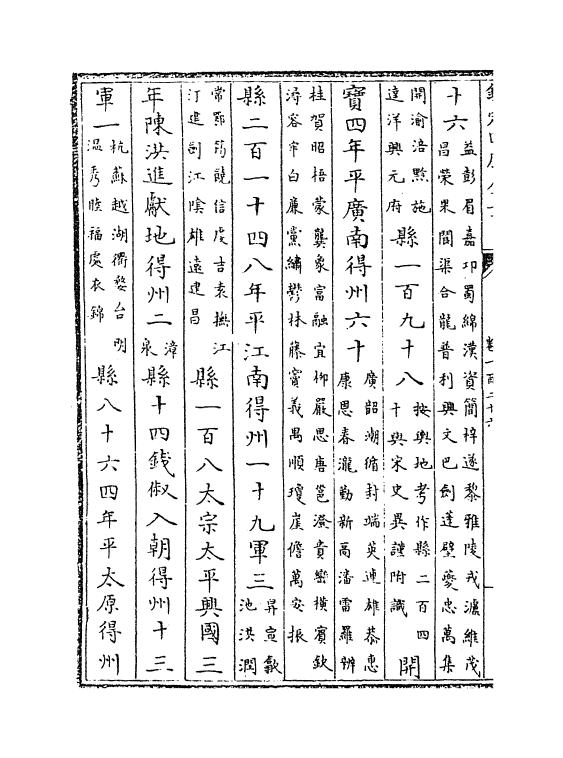 十六益彭眉嘉卭蜀綿漢資簡梓遂黎雅陵戎瀘維茂昌榮果閬渠合龍普利興文巴劍蓬壁夔忠萬集
開渝涪黔施達洋興元府縣一百九十八按輿地考作縣二百四十與宋史異謹附識開
寶四年平廣南得州六十廣韶湖循封端英連雄恭惠康思春瀧勤新高潘雷羅辨
桂賀昭梧蒙龔象富融宜柳嚴思唐邕澄貴巒橫賓欽潯容牢白廉黨繡鬱林藤竇義禺順瓊崖儋萬安振
縣二百一十四八年平江南得州一十九軍三昇宣歙池洪潤
常鄂筠饒信虔吉袁撫江汀建劍江陰雄遠建昌縣一百八太宗太平興國三
年陳洪進獻地得州二漳泉縣十四錢俶入朝得州十三
軍一杭蘇越湖衢婺台明溫秀睦福處衣錦縣八十六四年平太原得州